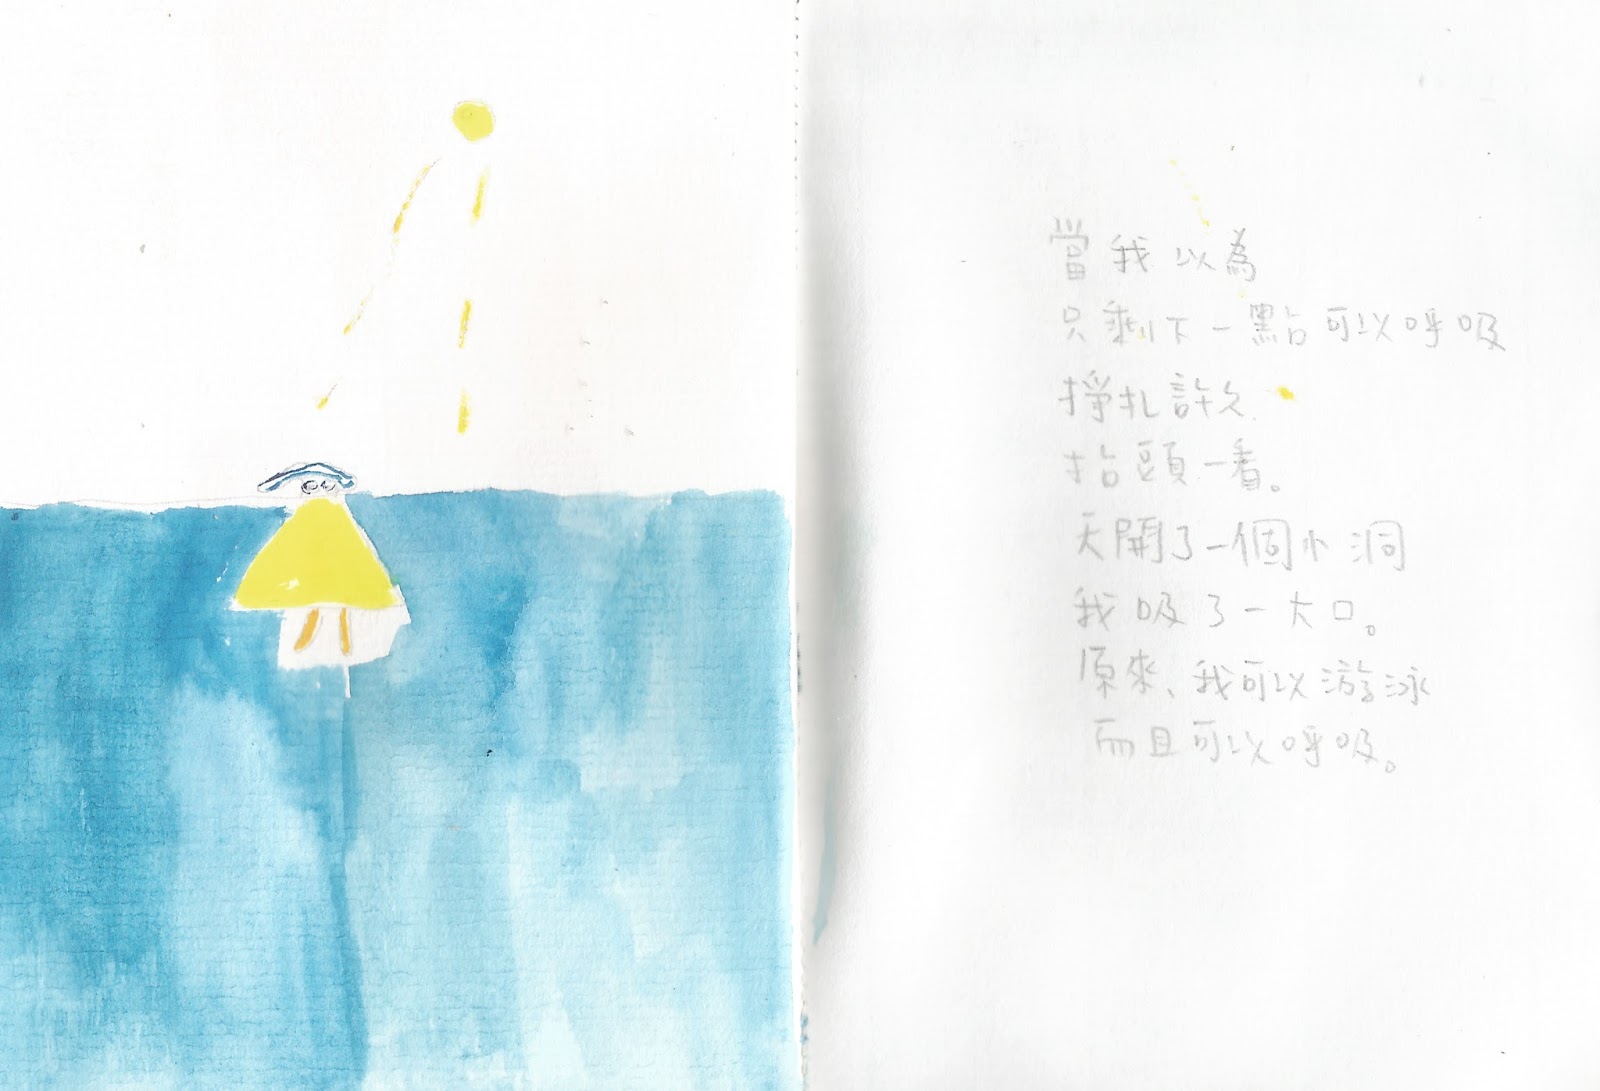 當我以為
只剩下一點可以呼吸
掙扎許久
抬頭一看。
天開了一個小洞
我吸了一大口。
原來、我可以游泳
而且可以呼吸。